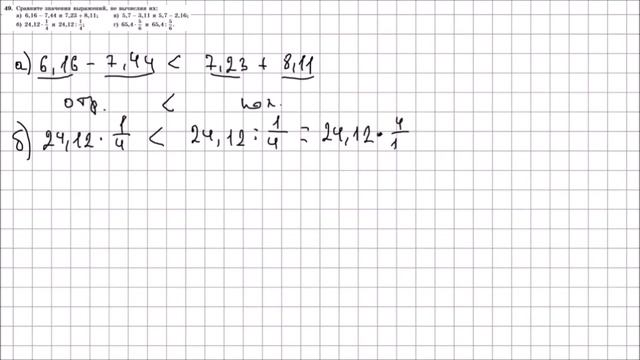 49. Сравните значения выражений, не вычисляя их:
а) 6,16 − 7,44 и 7,23 + 8,11; в) 5,7 − 3,11 и 5,7 − 2,16;
б) 24,12 · 1/4 и 24,12 : 1/4; г) 65,4 · 5/6 и 65,4 : 5/6.
а) 6,16 − 7,44 < 7,23 + 8,11
отр. < пол.
б) 24,12 · 1/4 < 24,12 : 1/4 = 24,12 · 4/1